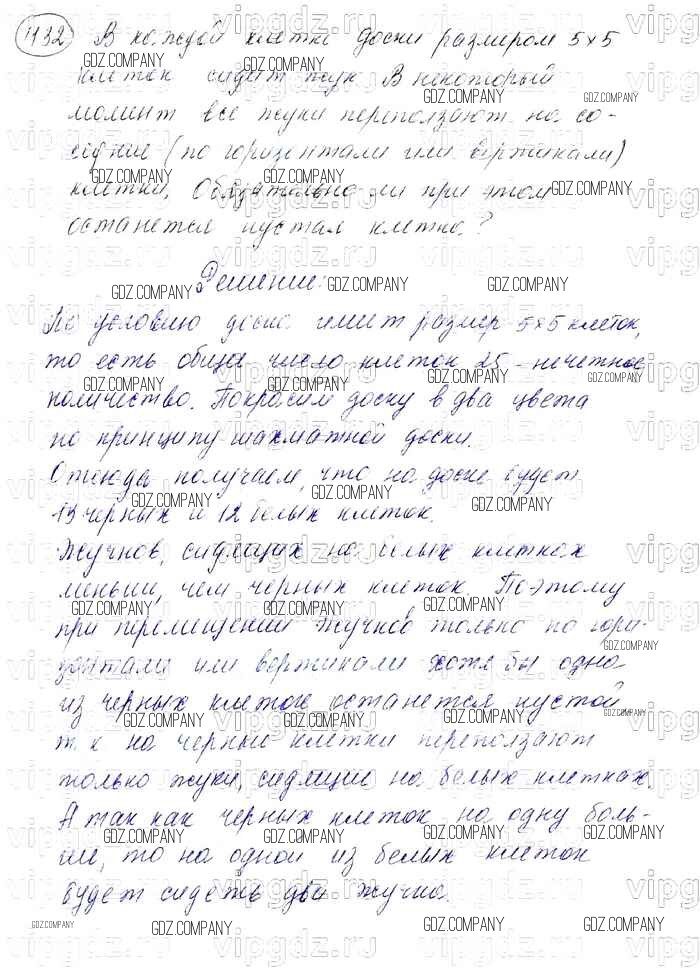 1132 В каждой клетке доски размером 5×5
клеток сидит жук. В некоторый
момент все жуки переползают на со-
седние (по горизонтали или вертикали)
клетки. Обязательно ли при этом
останется пустая клетка?
Решение:
По условию доска имеет размер 5×5 клеток,
то есть общее число клеток 25 - нечетное
количество. Покрасим доску в два цвета
по принципу шахматной доски.
Отсюда получаем, что на доске будет
13 черных и 12 белых клеток.
Жучков, сидящих на белых клетках
меньше, чем черных клеток. Поэтому
при перемещении жучков только по гори-
зонтали или вертикали хотя бы одна
из черных клеток останется пустой
т.к на черные клетки переползают
только жуки, сидящие на белых клетках.
А так как черных клеток на одну боль-
ше, то на одной из белых клеток
будет сидеть два жучка.
GDZ.COMPANY
vipgdz.ru